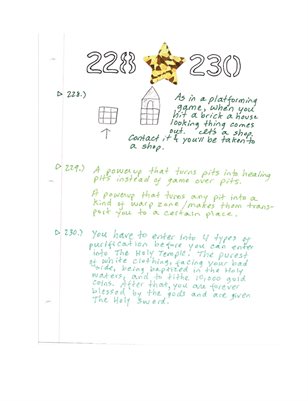 228 230
228.) As in a platforming
game, when you
hit a brick a house
looking thing comes
out. Its a shop.
Contact it & you'll be taken to
a shop.
229.) A powerup that turns pits into healing
pits instead of game over pits.
A powerup that turns any pit into a
kind of warp zone/makes them trans-
port you to a certain place.
230.) You have to enter into 4 types of
purification before you can enter
into The Holy Temple. The purest
of white clothing, facing your bad
side, being baptized in the Holy
waters, and to tithe 10,000 gold
coins. After that, you are forever
blessed by the gods and are given
The Holy Sword.